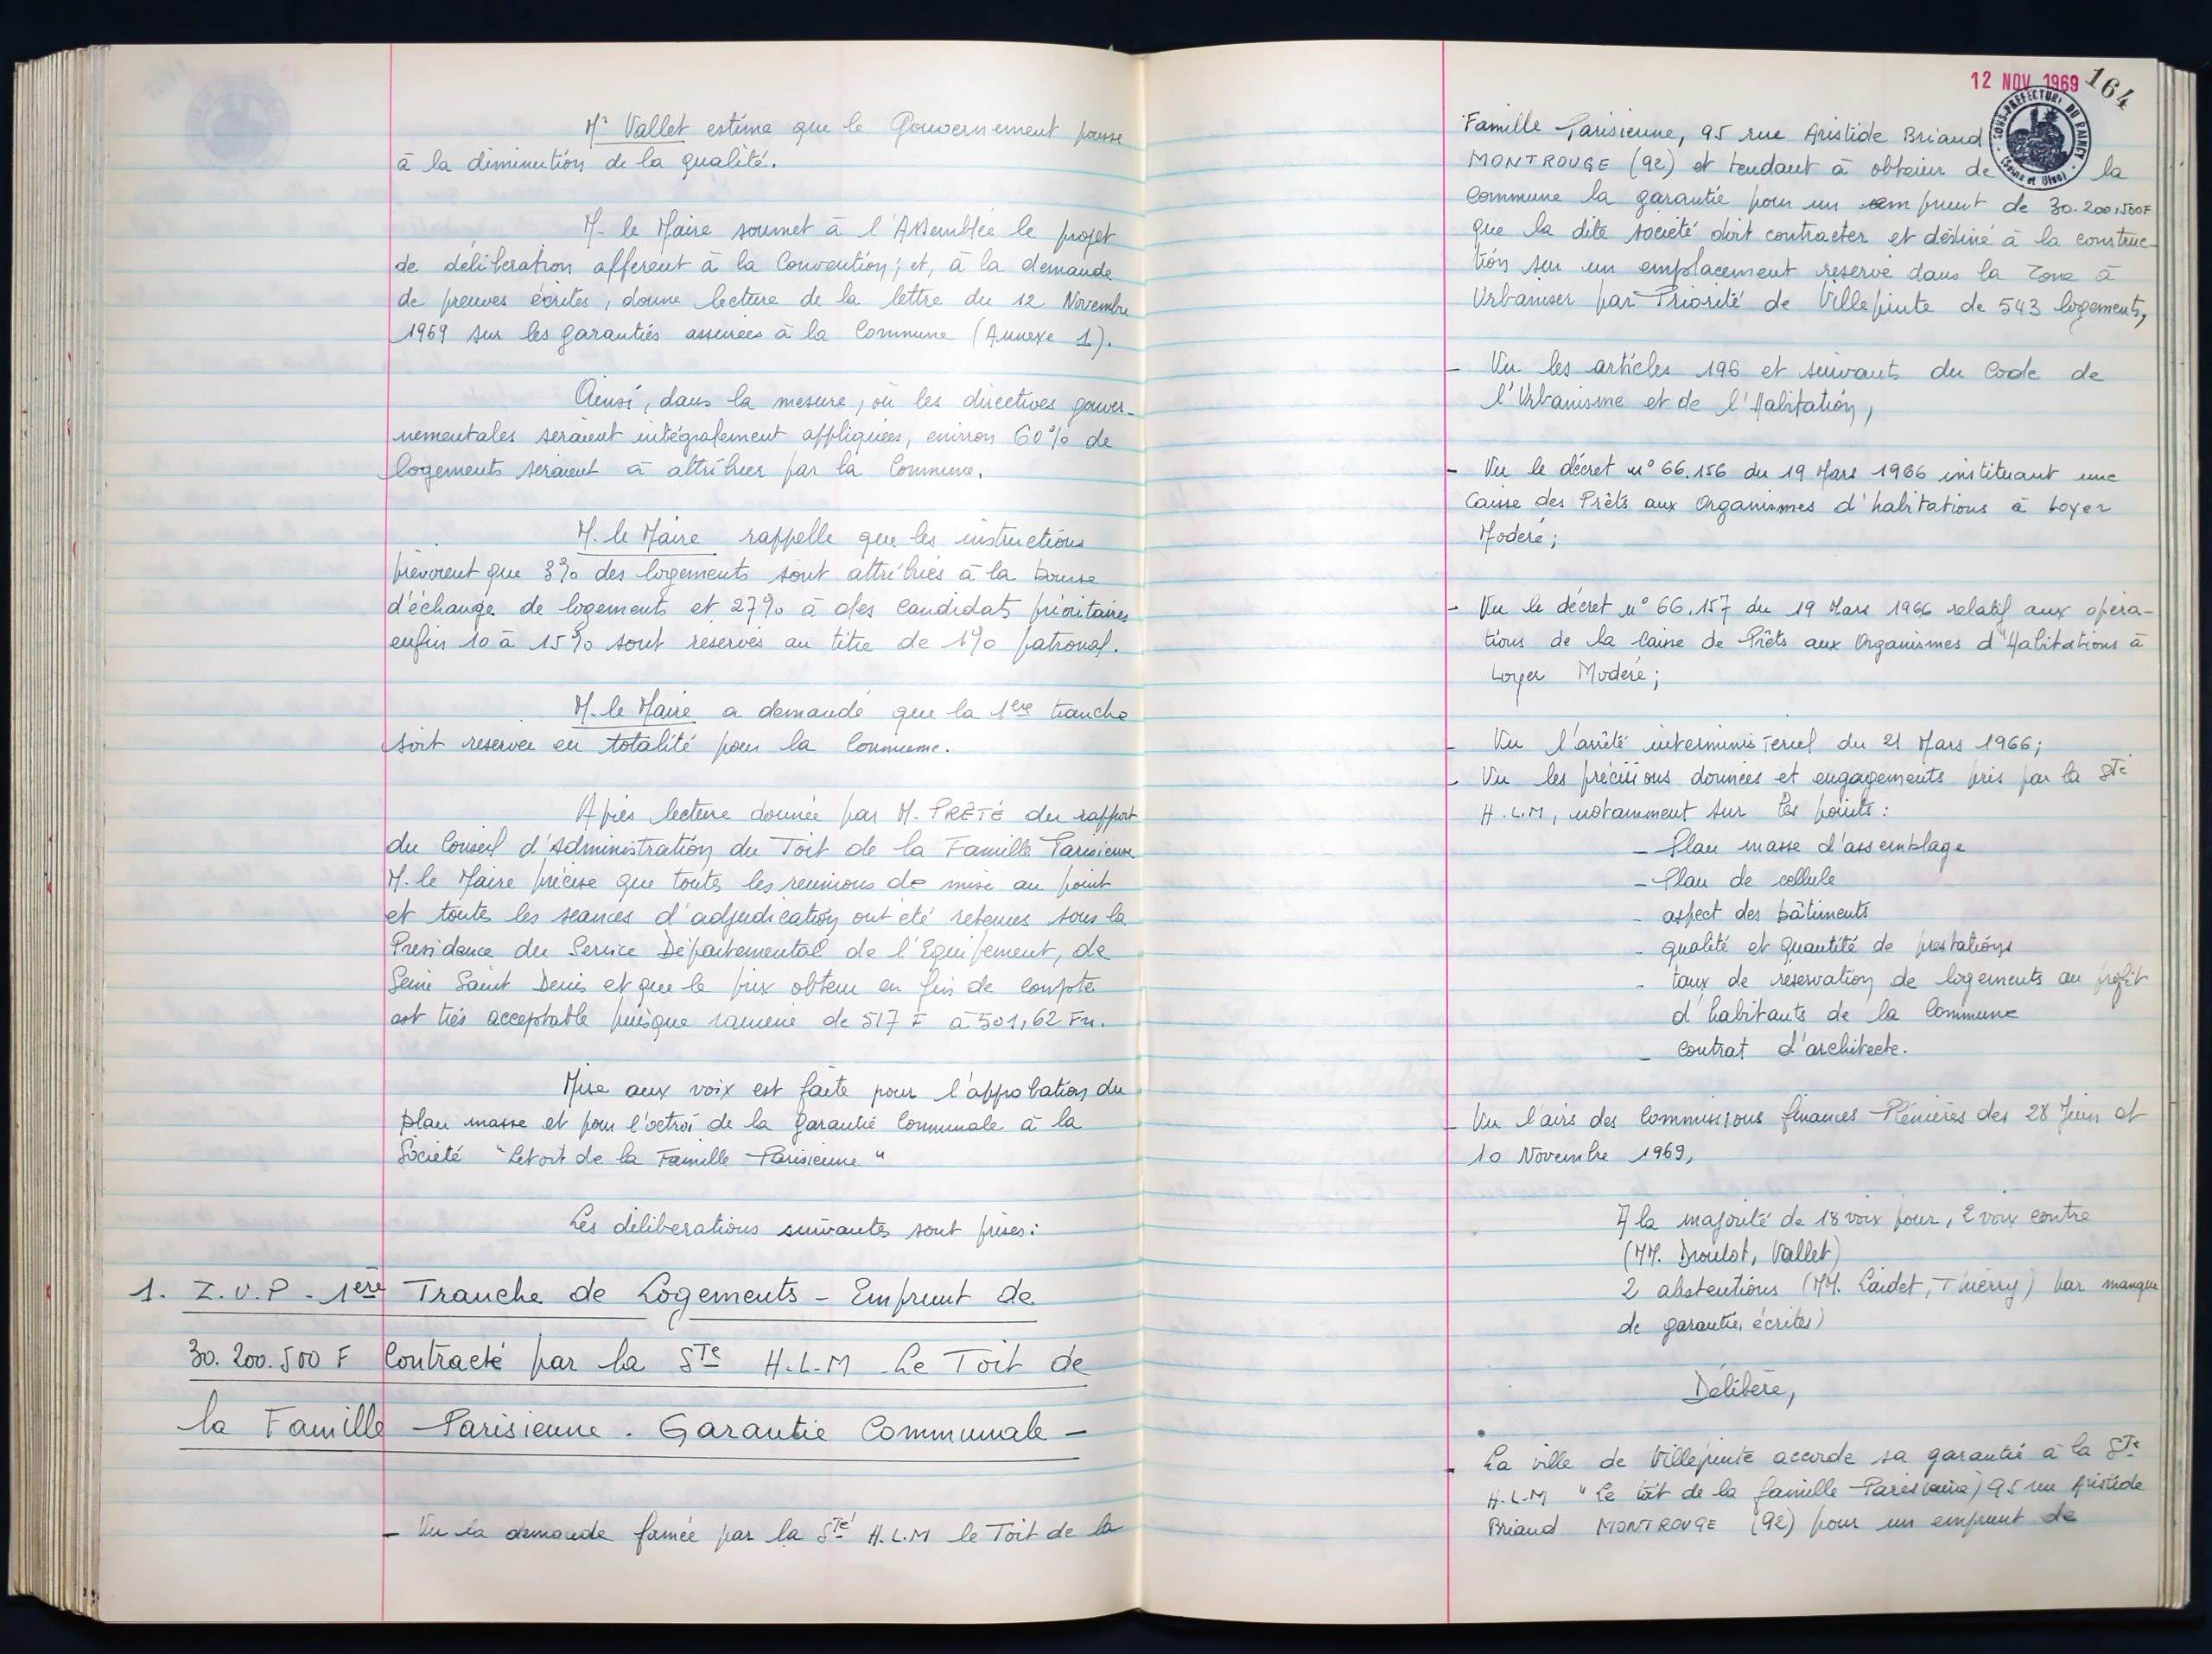 Mr Vallet estime que le Gouvernement pousse
à la diminution de la qualité.
M. le Maire soumet à l'Assemblée le projet
de déliberation afferent à la Convention; et, à la demande
de preuves écrites, donne lecture de la lettre du 12 Novembre
1969 sur les garanties assurées à la Commune (Annexe 1).
Ainsi, dans la mesure, où les directives gouver-
nementales seraient intégralement appliquées, environ 60% de
logements seraient à attribuer par la Commune.
M. le Maire rappelle que les instructions
prévoient que 3% des logements sont attribués à la bourse
d'échange de logements et 27% à des candidats prioritaires
enfin 10 à 15% sont reservés au titre de 1% patronal.
M. le Maire a demandé que la 1ere tranche
soit reservée en totalité pour la Commune.
Après lecture donnée par M. PRETÉ du rapport
du Conseil d'Administration du Toit de la Famille Parisienne
M. le Maire précise que toutes les reunions de mise au point
et toutes les seances d'adjudication ont été retenues sous la
Presidence du Service Départemental de l'Equipement, de
Seine Saint Denis et que le prix obtenu en fin de compte
est très acceptable puisque ramené de 517 F à 501,62 Fn.
Mise aux voix est faite pour l'approbation du
plan masse et pour l'octroi de la garantie Communale à la
Société "Letoit de la Famille Parisienne"
Les déliberations suivantes sont prises:
1. Z.U.P - 1ère Tranche de Logements - Emprunt de
30.200.500 F Contracté par la STe H.L.M Le Toit de
la Famille Parisienne. Garantie Communale -
- Vu la demande formée par la STe H.L.M le Toit de la
12 NOV 1969
164
SOUS-PREFECTURE DU RAINCY
(Seine et Oise)
Famille Parisienne, 95 rue Aristide Briand
MONTROUGE (92) et tendant à obtenir de la
Commune la garantie pour un emprunt de 30.200,500F
que la dite société doit contracter et destiné à la construc-
tion sur un emplacement reservé dans la Zone à
Urbaniser par Priorité de Villepinte de 543 logements,
- Vu les articles 196 et suivants du Code de
l'Urbanisme et de l'Habitation,
- Vu le décret n° 66.156 du 19 Mars 1966 instituant une
Caisse des Prêts aux Organismes d'habitations à Loyer
Moderé;
- Vu le décret n° 66.157 du 19 Mars 1966 relatif aux opéra-
tions de la Caisse de Prêts aux Organismes d'Habitations à
Loyer Moderé;
- Vu l'arrêté interministeriel du 21 Mars 1966;
- Vu les précisions données et engagements pris par la STe
H.L.M, notamment sur les points:
- Plan masse d'assemblage
- Plan de cellule
- aspect des bâtiments
- qualité et quantité de prestations
- taux de réservation de logements au profit
d'habitants de la Commune
- Contrat d'architecte.
- Vu l'avis des Commissions finances Plénières des 28 Juin et
10 Novembre 1969,
A la majorité de 18 voix pour, 2 voix contre
(MM. Droulot, Vallet)
2 abstentions (MM. Laidet, Thierry) par manque
de garantie, écrites)
Délibère,
- La ville de Villepinte accorde sa garantie à la STe
H.L.M "Le toit de la famille Parisienne) 95 rue Aristide
Briand MONTROUGE (92) pour un emprunt de